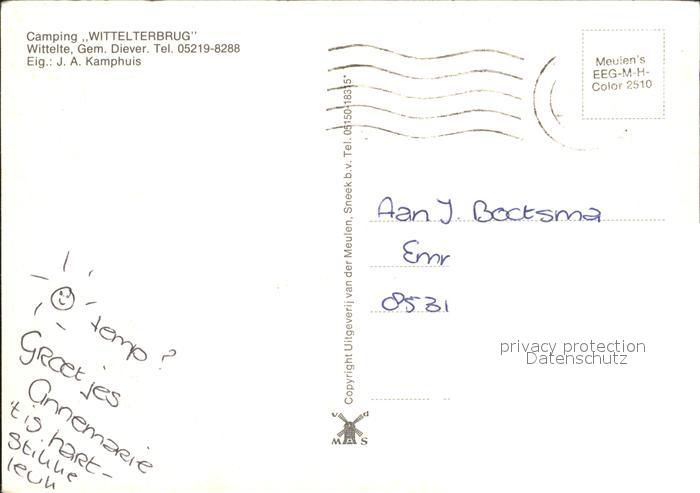 Camping ,,WITTELTERBRUG"
Wittelte, Gem. Diever. Tel. 05219-8288
Eig.: J. A. Kamphuis
Meulen's
EEG-M-H-
Color 2510
Copyright Uitgeverij van der Meulen, Sneek b.v. Tel. 05150-18315*
Aan J. Bootsma
Emr
8531
privacy protection
Datenschutz
temp ?
Groetjes
Annemarie
't is hart-
stikke
leuk
v d
M S